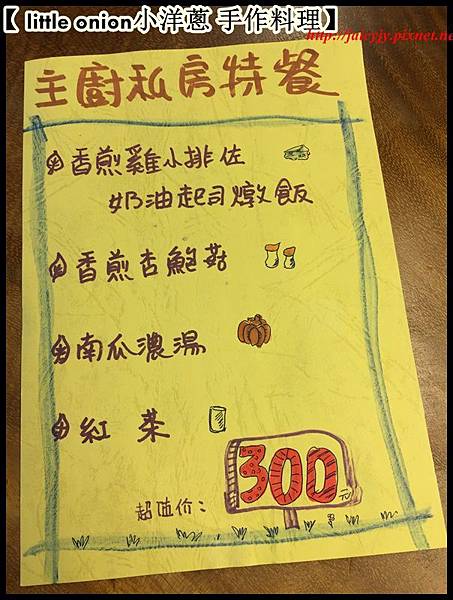 【 little onion小洋蔥 手作料理】
http://jaicyjy.pixnet.ne
主廚私房特餐
香煎雞小排佐
奶油起司燉飯
香煎杏鮑菇
南瓜濃湯
紅茶
超值价:
300元